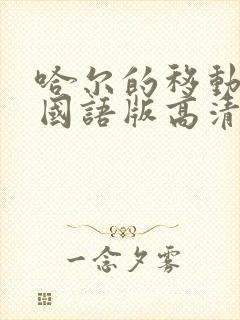 哈尔的移動
國語版高清
一念夕雾